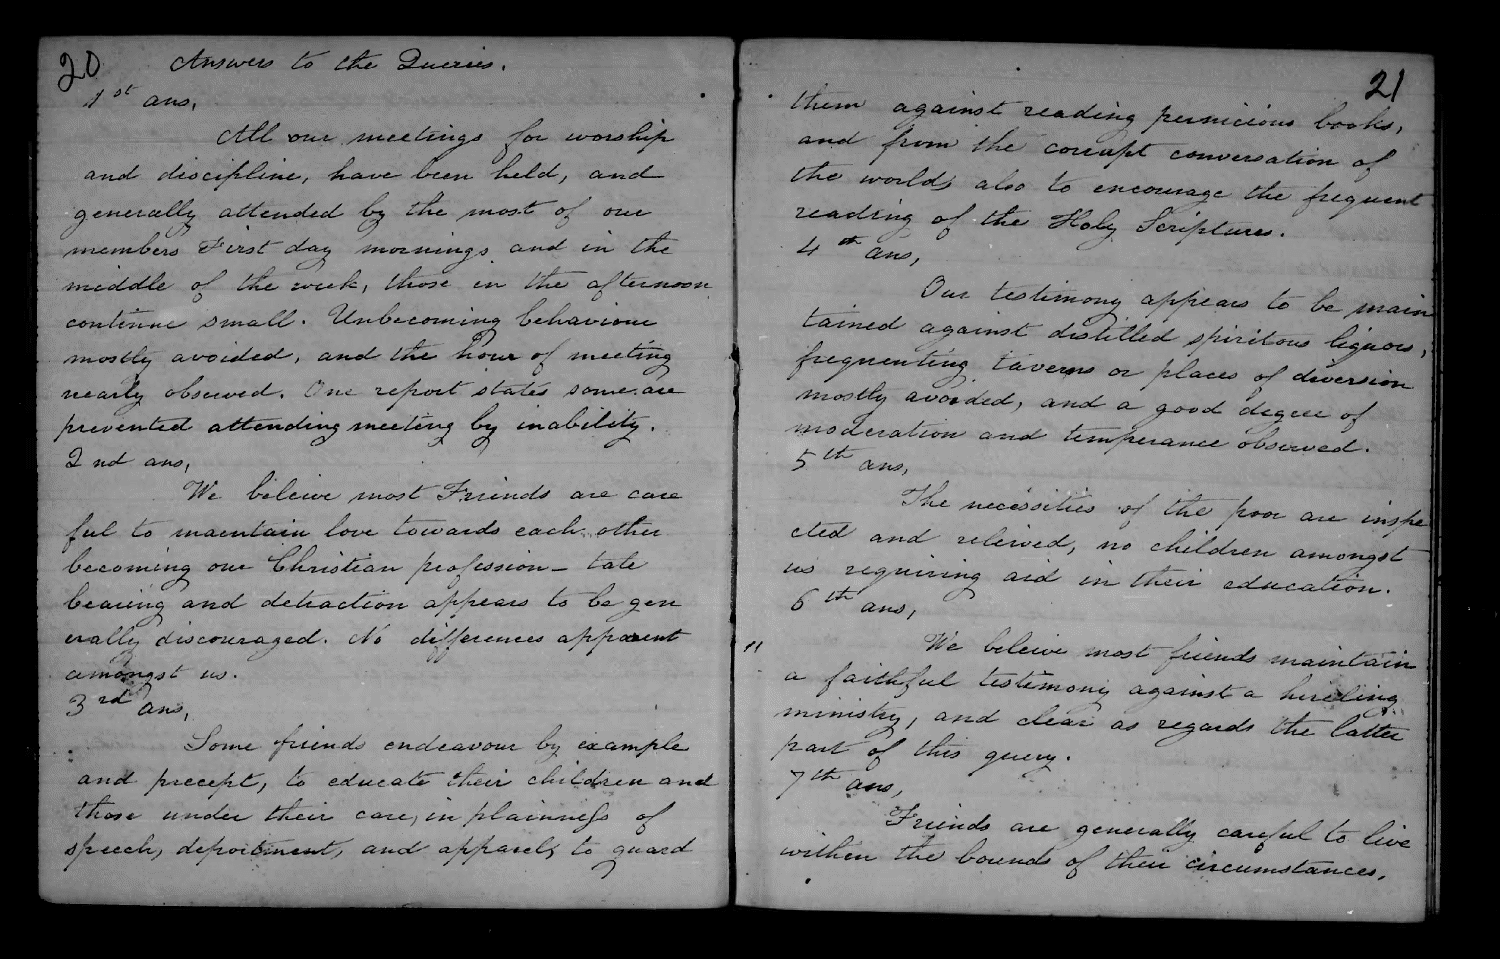 20
Answers to the Queries.
1st ans,
All our meetings for worship
and discipline, have been held, and
generally attended by the most of our
members First day mornings and in the
middle of the week, those in the afternoon
continue small. Unbecoming behaviour
mostly avoided, and the hour of meeting
nearly observed. One report states some are
prevented attending meeting by inability.
2nd ans,
We beleive most Friends are care
ful to maentain love towards each other
becoming our Christian profession - tale
bearing and detraction appears to be gen
erally discouraged. No differences apparent
amongst us.
3rd ans,
Some friends endeavour by example
and precept, to educate their children and
those under their care, in plainness of
speech, deportment, and apparel, to guard
21
them against reading pernicious books,
and from the corrupt conversation of
the world, also to encourage the frequent
reading of the Holy Scriptures.
4th ans,
Our testimony appears to be main
tained against distilled spiritous liquors,
frequenting taverns or places of diversion
mostly avoided, and a good degree of
moderation and temperance observed.
5th ans,
The necessities of the poor are inspe
cted and releived, no children amongst
us requiring aid in their education.
6th ans,
We beleive most friends maintain
a faithful testimony against a hireling
ministry, and clear as regards the latter
part of this query.
7th ans,
Friends are generally careful to live
within the bounds of their circumstances,